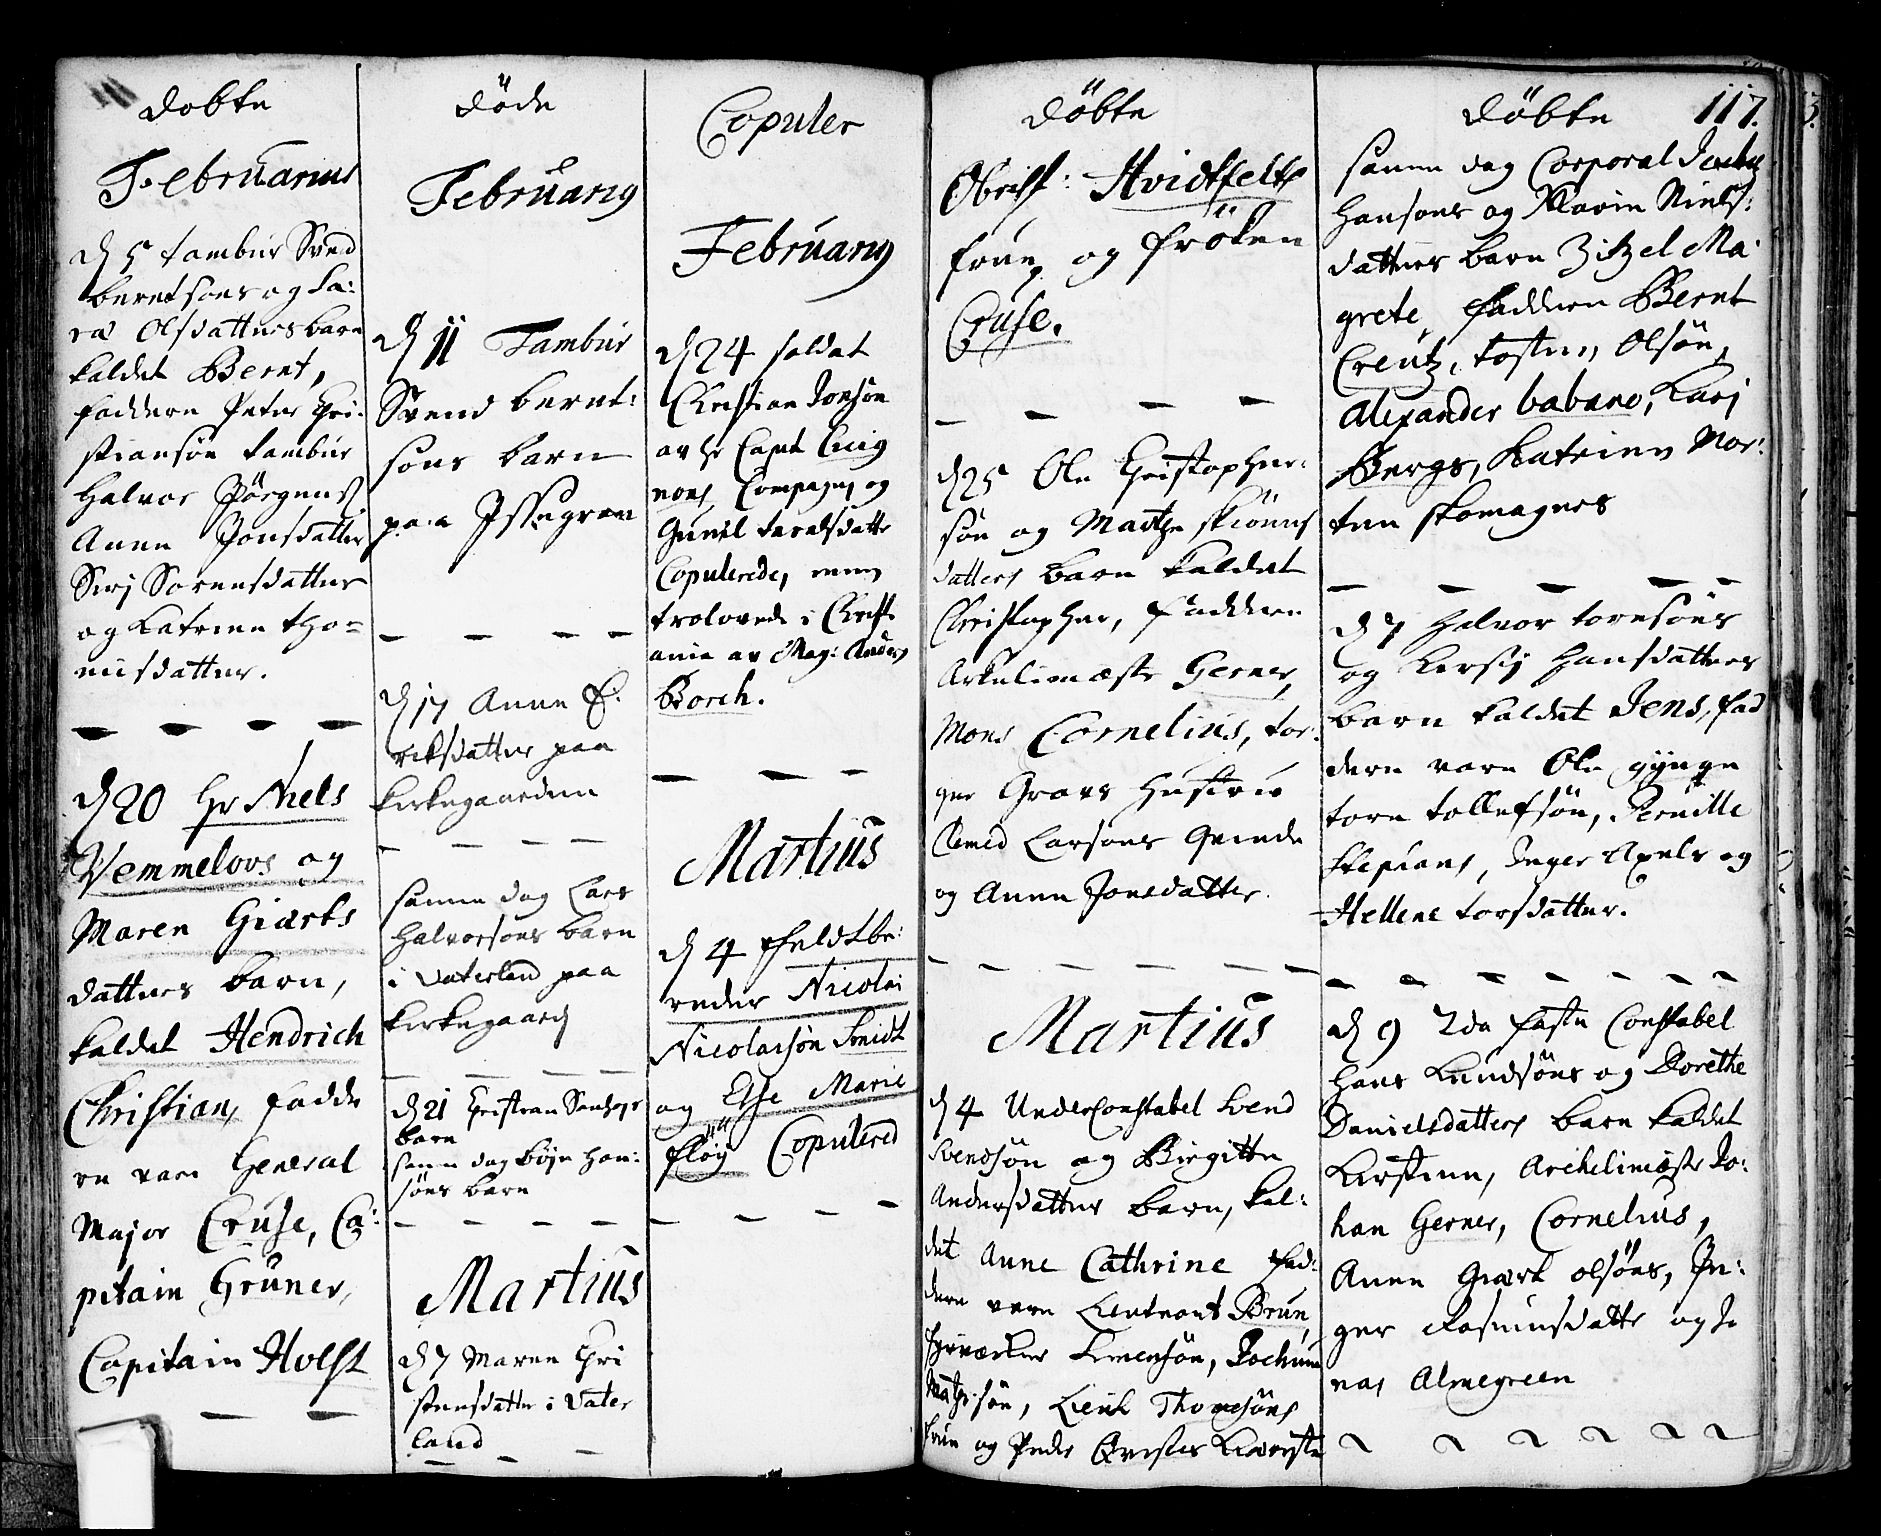 Dobte
Februarius
d 5 tambur Svend
berntsøns og Sa:
ra Olsdatters barn
kaldet Bernt,
faddere Peter Chri-
stiansøn tambur
Halvor Jørgens
Anne Jonsdatter
Sirj Sørensdatter
og Katrine tho=
misdatter.
d 20 Hr Niels
Vemmelovs og
Maren Giærts
datters barn,
kaldet Hendrich
Christian, fadde
re vare General
Major Cruse, Ca:
pitain Gruner,
Capitain Holst
Döde
Februarij
d 11 Tambur
Svend bernt:
søns barn
paa
d 17 Anne E.
riksdatter paa
kirkegaarden
samme dag Lars
Halvorsøns barn
i Vaterland paa
kirkegaard
d 21 Christian
barn
samme dag Bøje Han:
søns barn
Martius
d 7 Maren Chri
stensdatter i Vater
land
Copuler
Februarij
d 24 soldat
Christian Jonsøn
av Hr Capt
Compagni og
Gunil
Copulerede,
trolovede i Christi
ania av Mag: Anders
Borch.
Martius
d 4 feldtbe:
reder Nicolai
Nicolaisøn Smidt
og Else Marie
Fløy Copulered
Döbte
Obrist: Hvidtfelts
frue og frøken
Cruse.
d 25 Ole Christopher:
søn og Martha
datters barn kaldet
Christopher, faddere
Arkelimæster Gerner,
Mons Cornelius, tor:
ger Gravs Hustrue
Larsøns Qvinde
og Anne Jonsdatter.
Martius
d 4 UnderConstabel Svend
Svendsøn og Birgitte
Andersdatters barn, kal:
det Anne Cathrine fad:
dere vare Lieutnant Brun,
Simensøn, Jochum
søn, Lieut Thomesøns
frue og Peder
Döbte 117.
samme dag Corporal
Hansøns og Karin Niels:
datters barn Zitzel Ma
grete, faddere Bernt
Creutz, tosten Olsøn,
Alexander babano, Karj
Bergs, Katrine Mor:
ten skomagers
d 7 Halvor toresøns
og Kersti Hansdatters
barn kaldet Jens, fad
dere vare Ole gÿnge
tore tollefsøn, Pernille
Stephans, Inger Axels og
Hellene torsdatter.
d 9 2da faste Constabel
Hans Knudsøns og Dorethe
Danielsdatters barn kaldet
Kirstine, Archelimæster Jo:
han Gerner, Cornelius,
Anne Giært olsøns, In:
ger Rasmusdatter og Jo
nas Almegreen